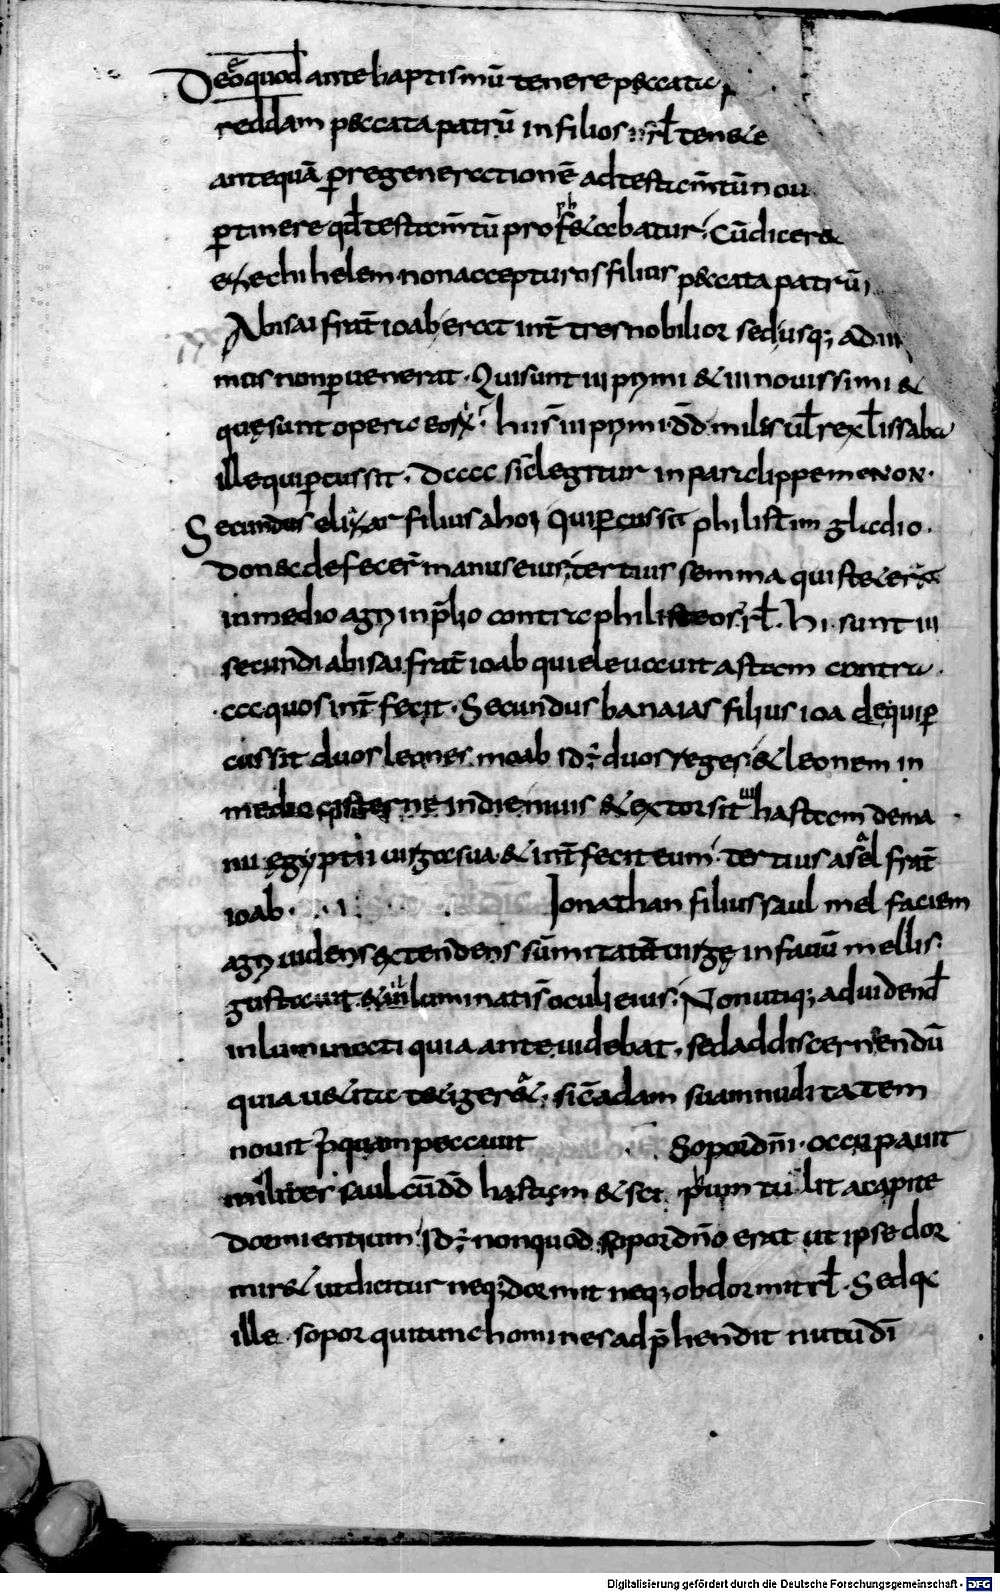 Deo quod ante baptismū tenere peccata
reddam peccata patrū in filios rł tenete
antequā p regenerationē ad testam̄tūn ou
ptinere qđ testam̄tū profetabatur; Cū dicere
ezechihelem non accepturos filios peccata patrū
Abisai frat̄ ioab erat int̄ tres nobilior sed usq; ad iii
mos non puenerat. Qui sunt iii pymi & iii novissimi &
quę sunt opera eorum. hui s̄ iii pymi. dd̄. miles uł rex ł issaba
ille qui pcussit. dcccc sic̄ legitur in paralippemenon.
Secundus eliazar filius ahoi qui pcussit philistim gladio.
donec defecer̄ manus eius; tertius semma qui stetera
in medio agri in plio contra philisteos. rł. hi. sunt iii
secundi abisai frat̄ ioab qui eleuauit astam contra.
ccc quos int̄fecit. Secundus banaias filius ioadę qui p
cussit duos leones moab id; duos reges; & leonem in
medio cisternę in die niuis & extorsit hastam dema
nu ęgyptii uirga sua. & int̄fecit eum. tertius asael frat̄
ioab. Jonathan filius saul mel faciem
agri uidens extendens sūmitatē uirgę in fauū mellis.
gustauit. & illuminati s̄ oculi eius; Non utiq; ad uidend̄
inluminati quia ante uidebat. sed ad discernendū
quia uetita tetigerat. sic̄ adam suam nuditatem
nouit p̄quam peccauit Sopor dnī. occupauit
militer saul cū dd̄ hastam & sci pum tulit a capite
dormientium. Id; non quod sopor dn̄o erat ut ipse dor
miret ut dicitur neq; dormit neq; obdormit rł. Sed q̄
ille sopor qui tunc homines adp̄hendit nutu dī